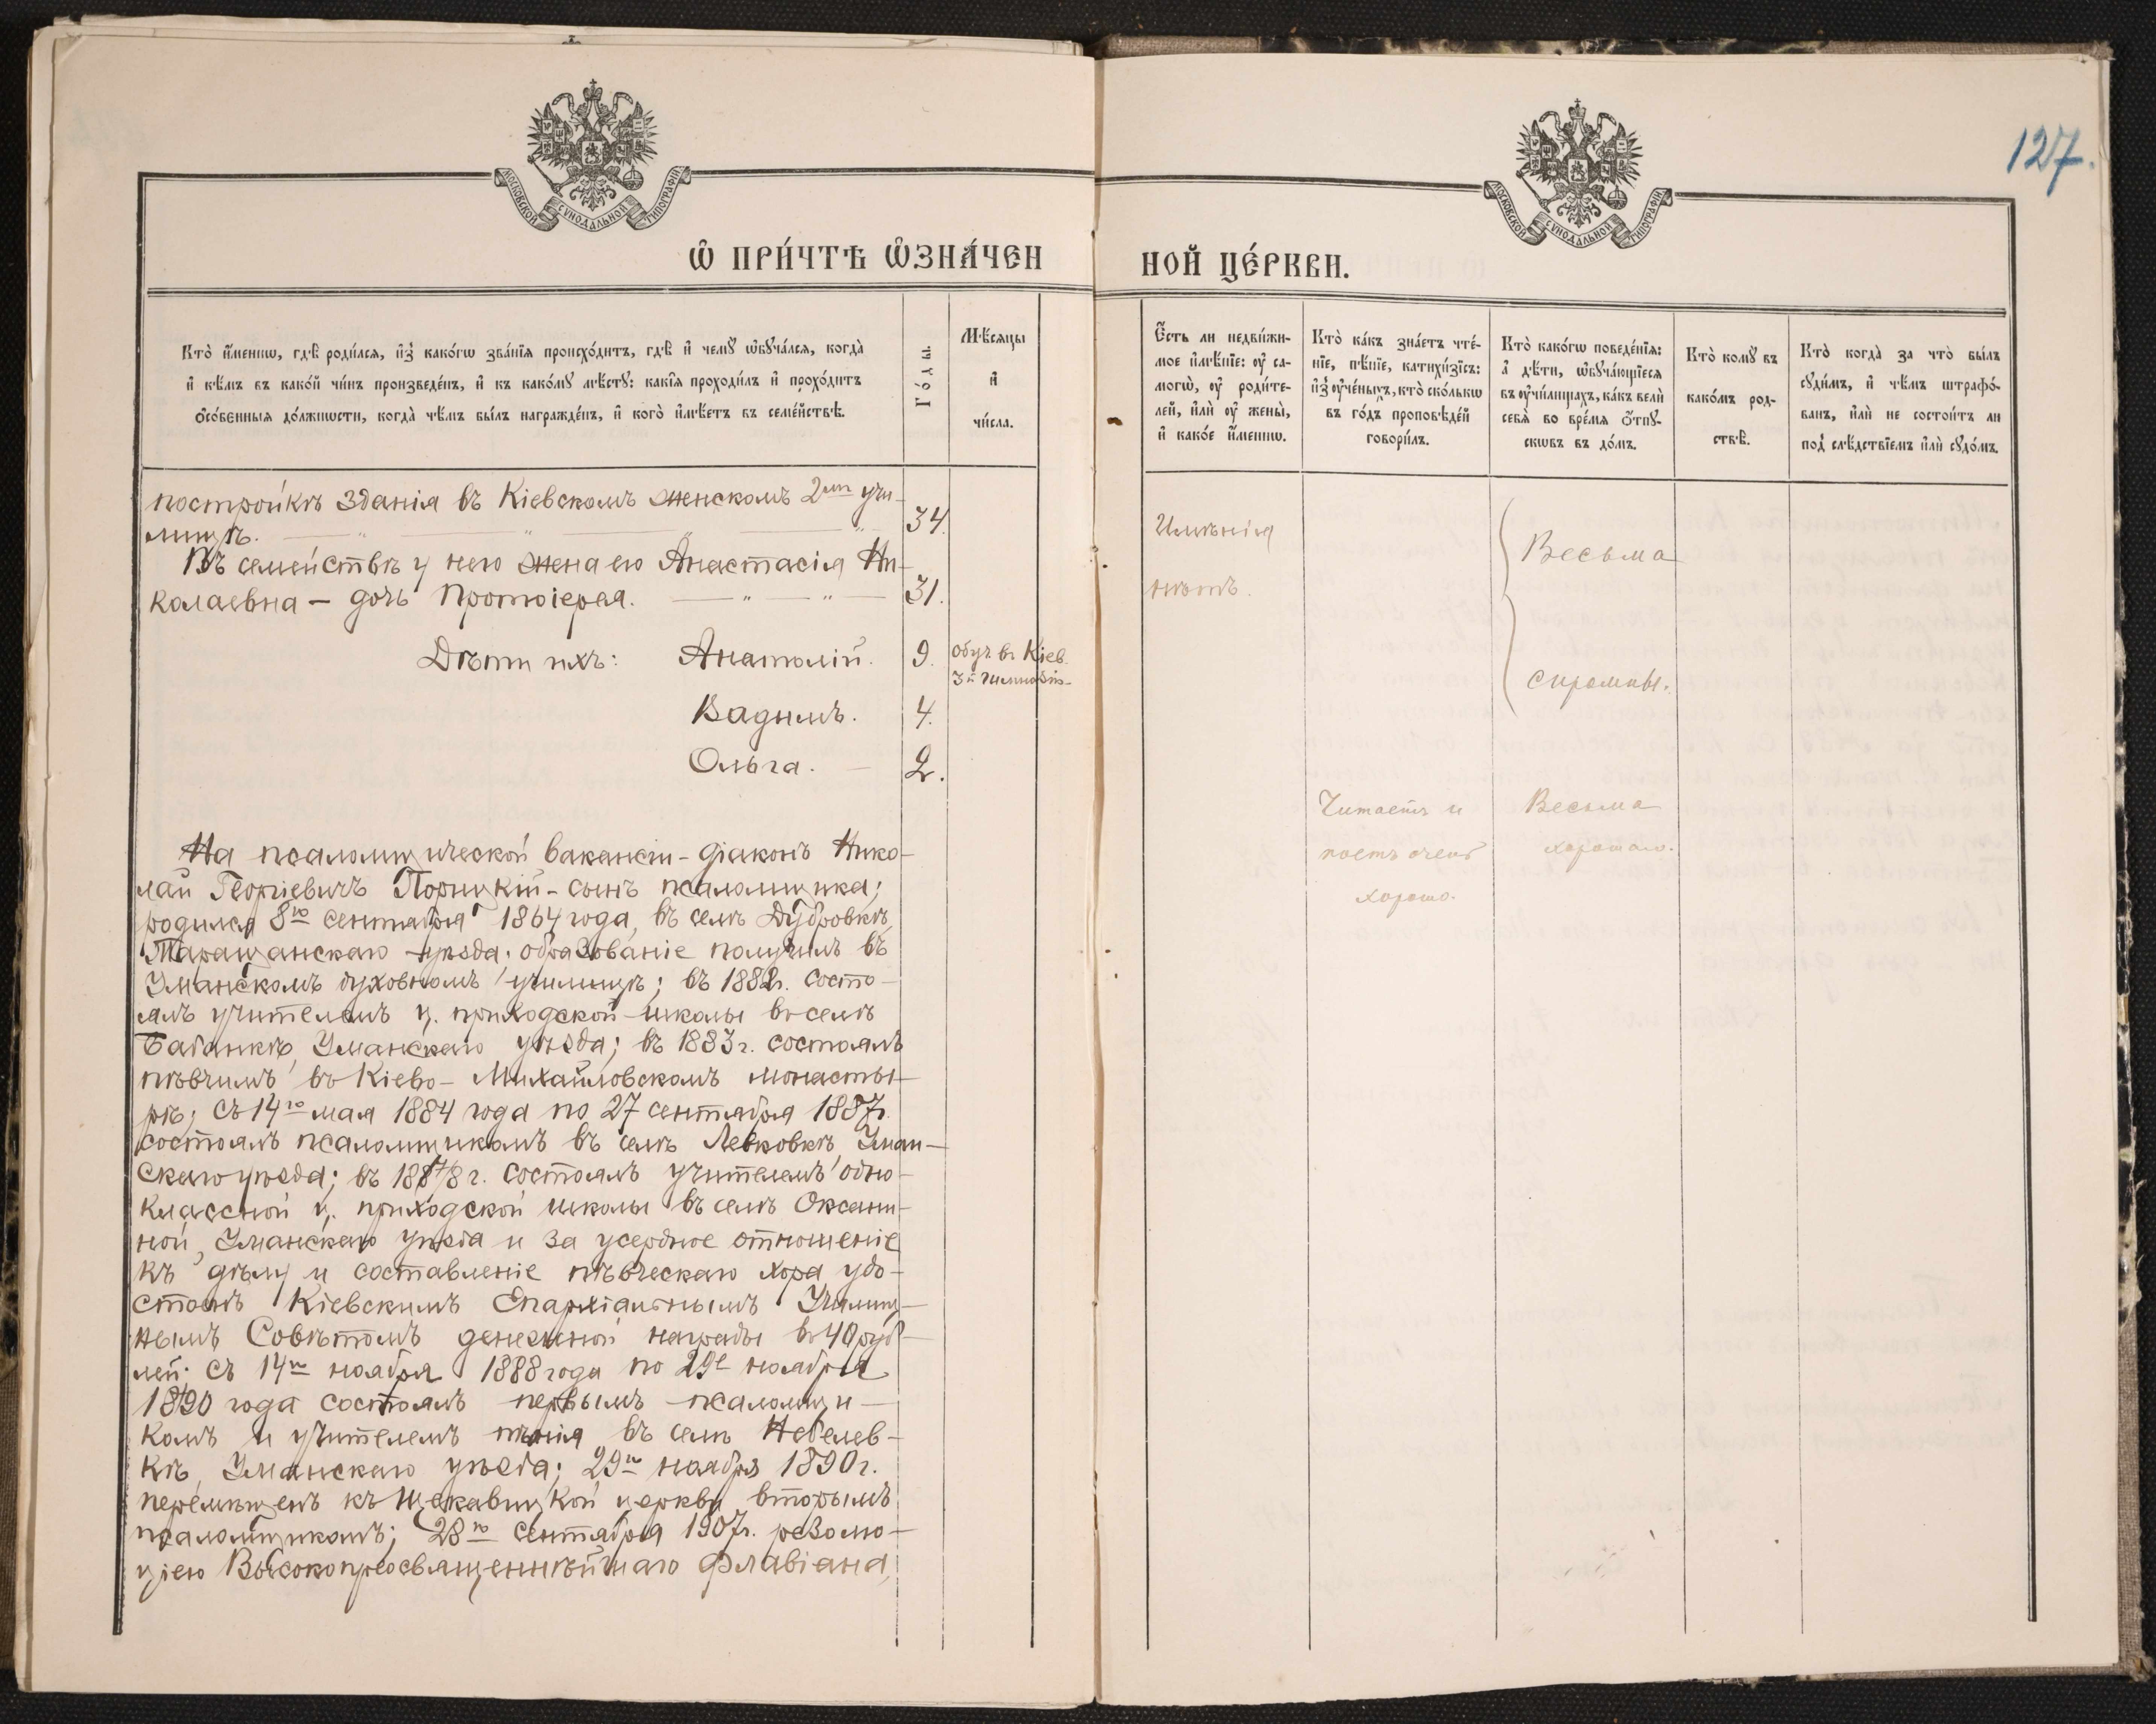 127.
МОСКОВСКОЙ СѴНОДАЛЬНОЙ ТИПОГРАФІИ
МОСКОВСКОЙ СѴНОДАЛЬНОЙ ТИПОГРАФІИ
Ѡ ПРИ́ЧТѢ ѠЗНА́ЧЕН
НОЙ ЦЕ́РКВИ.
Кто̀ и҆́меннѡ, гдѣ̀ роди́лся, и҆з̾ како́гѡ зва́нїѧ происхо́дитъ, гдѣ̀ и҆ чемꙋ̀ ѡ҆бꙋча́лся, когда̀
и҆ кѣ́мъ въ како́й чи́нъ произведе́нъ, и҆ къ како́мꙋ мѣ́стꙋ: какі́ѧ проходи́лъ и҆ прохо́дитъ
ѻ҆со́бенныѧ до́лжнѡсти, когда̀ чѣ́мъ бы́лъ награжде́нъ, и҆ кого̀ и҆мѣ́етъ въ семе́йствѣ.
Го́ды.
Мѣ́сѧцы
и҆
чи́сла.
Е҆́сть ли недви́жи-
мое и҆мѣ́нїе: ᲂу҆ са-
могѡ̀, ᲂу҆ роди́те-
лей, и҆лѝ ᲂу҆ жены̀,
и҆ како́е и҆́меннѡ.
Кто̀ ка́къ зна́етъ чте́-
нїе, пѣ́нїе, катихи́зїсъ:
и҆з̾ ᲂу҆че́ныхъ, кто̀ ско́лькѡ
въ го́дъ проповѣ́дей
говори́лъ.
Кто̀ како́гѡ поведе́нїѧ:
а҆ дѣ́ти, ѡ҆бꙋча́ющїесѧ
въ ᲂу҆чи́лищахъ, ка́къ велѝ
себѧ̀ во вре́мѧ ѿпꙋ-
скѡвъ въ до́мъ.
Кто̀ комꙋ̀ въ
како́мъ род-
ствѣ̀.
Кто̀ когда̀ за что̀ бы́лъ
сꙋди́мъ, и҆ чѣ́мъ штрафо́-
ванъ, и҆лѝ не состои́тъ ли
под̾ слѣ́дствїемъ и҆лѝ сꙋдо́мъ.
постройкѣ зданія въ Кіевскомъ женскомъ 2мъ учи-
лищѣ. — " — " — " 34.
Въ семействѣ у него жена его Анастасія Ни-
колаевна – дочь Протоіерея. — " — " — 31.
Дѣти ихъ: Анатолій. 9. обуч. въ Кіев.
3й гимназіи
Вадимъ. 4.
Ольга. — 2.
Имѣнія
нѣтъ.
Весьма
скромны.
На псаломщической вакансіи – діаконъ Нико-
лай Георгіевичъ Порицкій – сынъ псаломщика;
родился 8го сентября 1864 года, въ селѣ Дубровкѣ,
Таращанскаго уѣзда. образованіе получилъ въ
Уманскомъ духовномъ училищѣ; въ 1882г. состо-
ялъ учителемъ ц. приходской школы въ селѣ
Бабанкѣ, Уманскаго уѣзда; въ 1883г. состоялъ
пѣвчимъ въ Кіево-Михайловскомъ монасты-
рѣ; съ 14го мая 1884 года по 27 сентября 1887г.
состоялъ псаломщикомъ въ селѣ Левковкѣ, Уман-
скаго уѣзда; въ 1887/8г. состоялъ учителемъ одно-
классной ц. приходской школы въ селѣ Оксани-
ной, Уманскаго уѣзда и за усердное отношеніе
къ дѣлу и составленіе пѣвческаго хора удо-
стоенъ Кіевскимъ Епархіальнымъ Училищ-
нымъ Совѣтомъ денежной награды въ 40 руб-
лей; съ 14го ноября 1888 года по 29е ноября
1890 года состоялъ первымъ псаломщи-
комъ и учителемъ пѣнія въ селѣ Небелев-
кѣ, Уманскаго уѣзда; 29го ноября 1890г.
перемѣщенъ къ Щекавицкой церкви вторымъ
псаломщикомъ; 28го сентября 1907г. резолю-
ціею Высокопреосвященнѣйшаго Флавіана,
Читаетъ и
поетъ очень
хорошо.
Весьма
хорошаго.